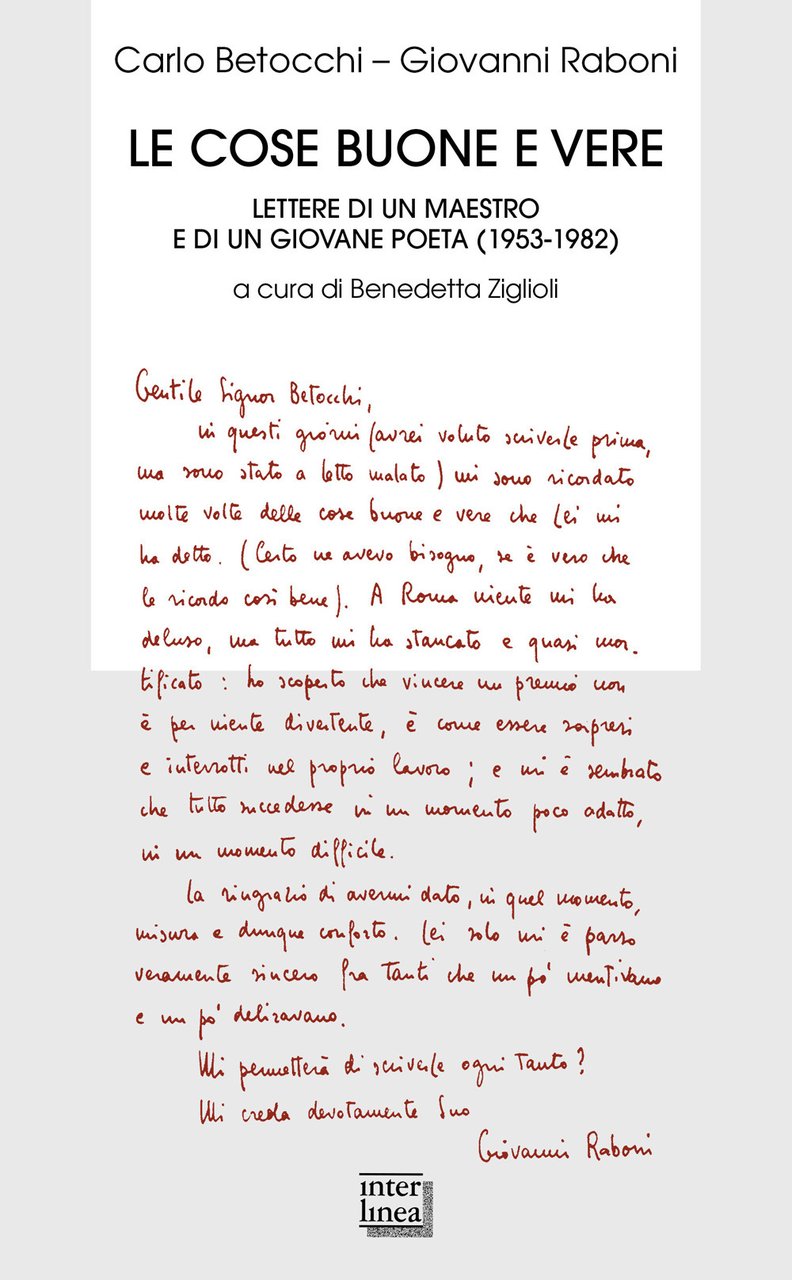 Carlo Betocchi – Giovanni Raboni
LE COSE BUONE E VERE
LETTERE DI UN MAESTRO
E DI UN GIOVANE POETA (1953-1982)
a cura di Benedetta Ziglioli
Gentile Signor Betocchi,
in questi giorni (avrei voluto scriverLe prima,
ma sono stato a letto malato) mi sono ricordato
molte volte delle cose buone e vere che Lei mi
ha detto. (Certo ne avevo bisogno, se è vero che
le ricordo così bene). A Roma niente mi ha
deluso, ma tutto mi ha stancato e quasi mor-
tificato: ho scoperto che vincere un premio non
è per niente divertente, è come essere sorpresi
e interrotti nel proprio lavoro; e mi è sembrato
che tutto succedesse in un momento poco adatto,
in un momento difficile.
La ringrazio di avermi dato, in quel momento,
misura e dunque conforto. Lei solo mi è parso
veramente sincero fra tanti che un po' mentivano
e un po' deliravano.
Mi permetterà di scriverLe ogni tanto?
Mi creda devotamente Suo
Giovanni Raboni
inter
linea